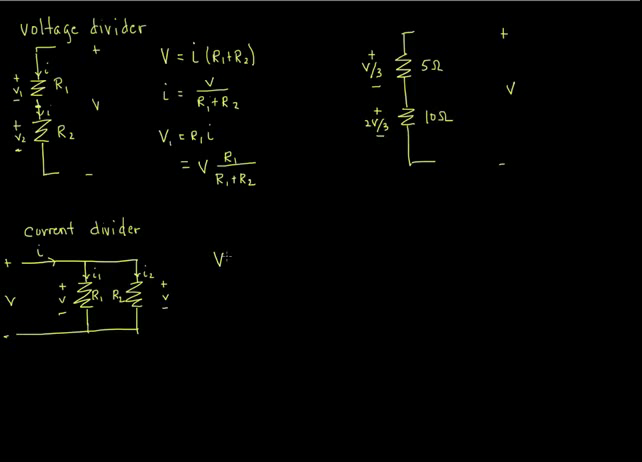 voltage divider
+
i
+
V₁
-
R₁
i
+
V₂
-
R₂
V
-
V = i (R₁+R₂)
i = V / (R₁+R₂)
V₁ = R₁ i
= V R₁ / (R₁+R₂)
+
V/3
-
5Ω
+
2V/3
-
10Ω
+
V
-
current divider
i
+
V
-
i₁
+
V
-
R₁
i₂
R₂
+
V
-
V